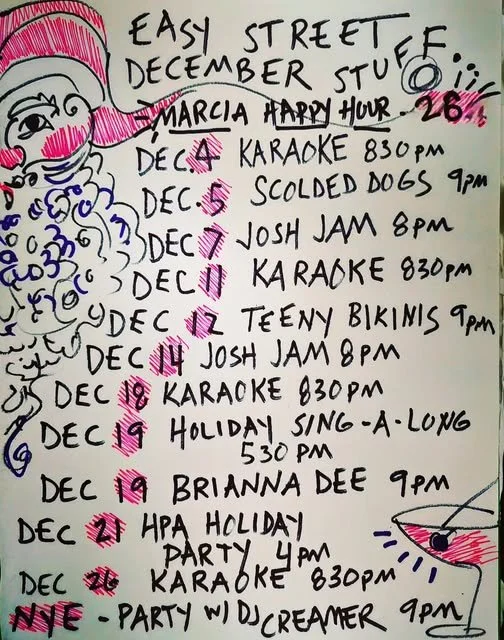 EASY STREET
DECEMBER STUFF...
MARCIA HAPPY HOUR - 26..
DEC. 4 KARAOKE 830PM
DEC. 5 SCOLDED DOGS 9PM
DEC 7 JOSH JAM 8PM
DEC 11 KARAOKE 830PM
DEC 12 TEENY BIKINIS 9PM
DEC 14 JOSH JAM 8PM
DEC 18 KARAOKE 830PM
DEC 19 HOLIDAY SING-A-LONG
530PM
DEC 19 BRIANNA DEE 9PM
DEC 21 HPA HOLIDAY
PARTY 4PM
DEC 26 KARAOKE 830PM
NYE - PARTY W/ DJ CREAMER 9PM